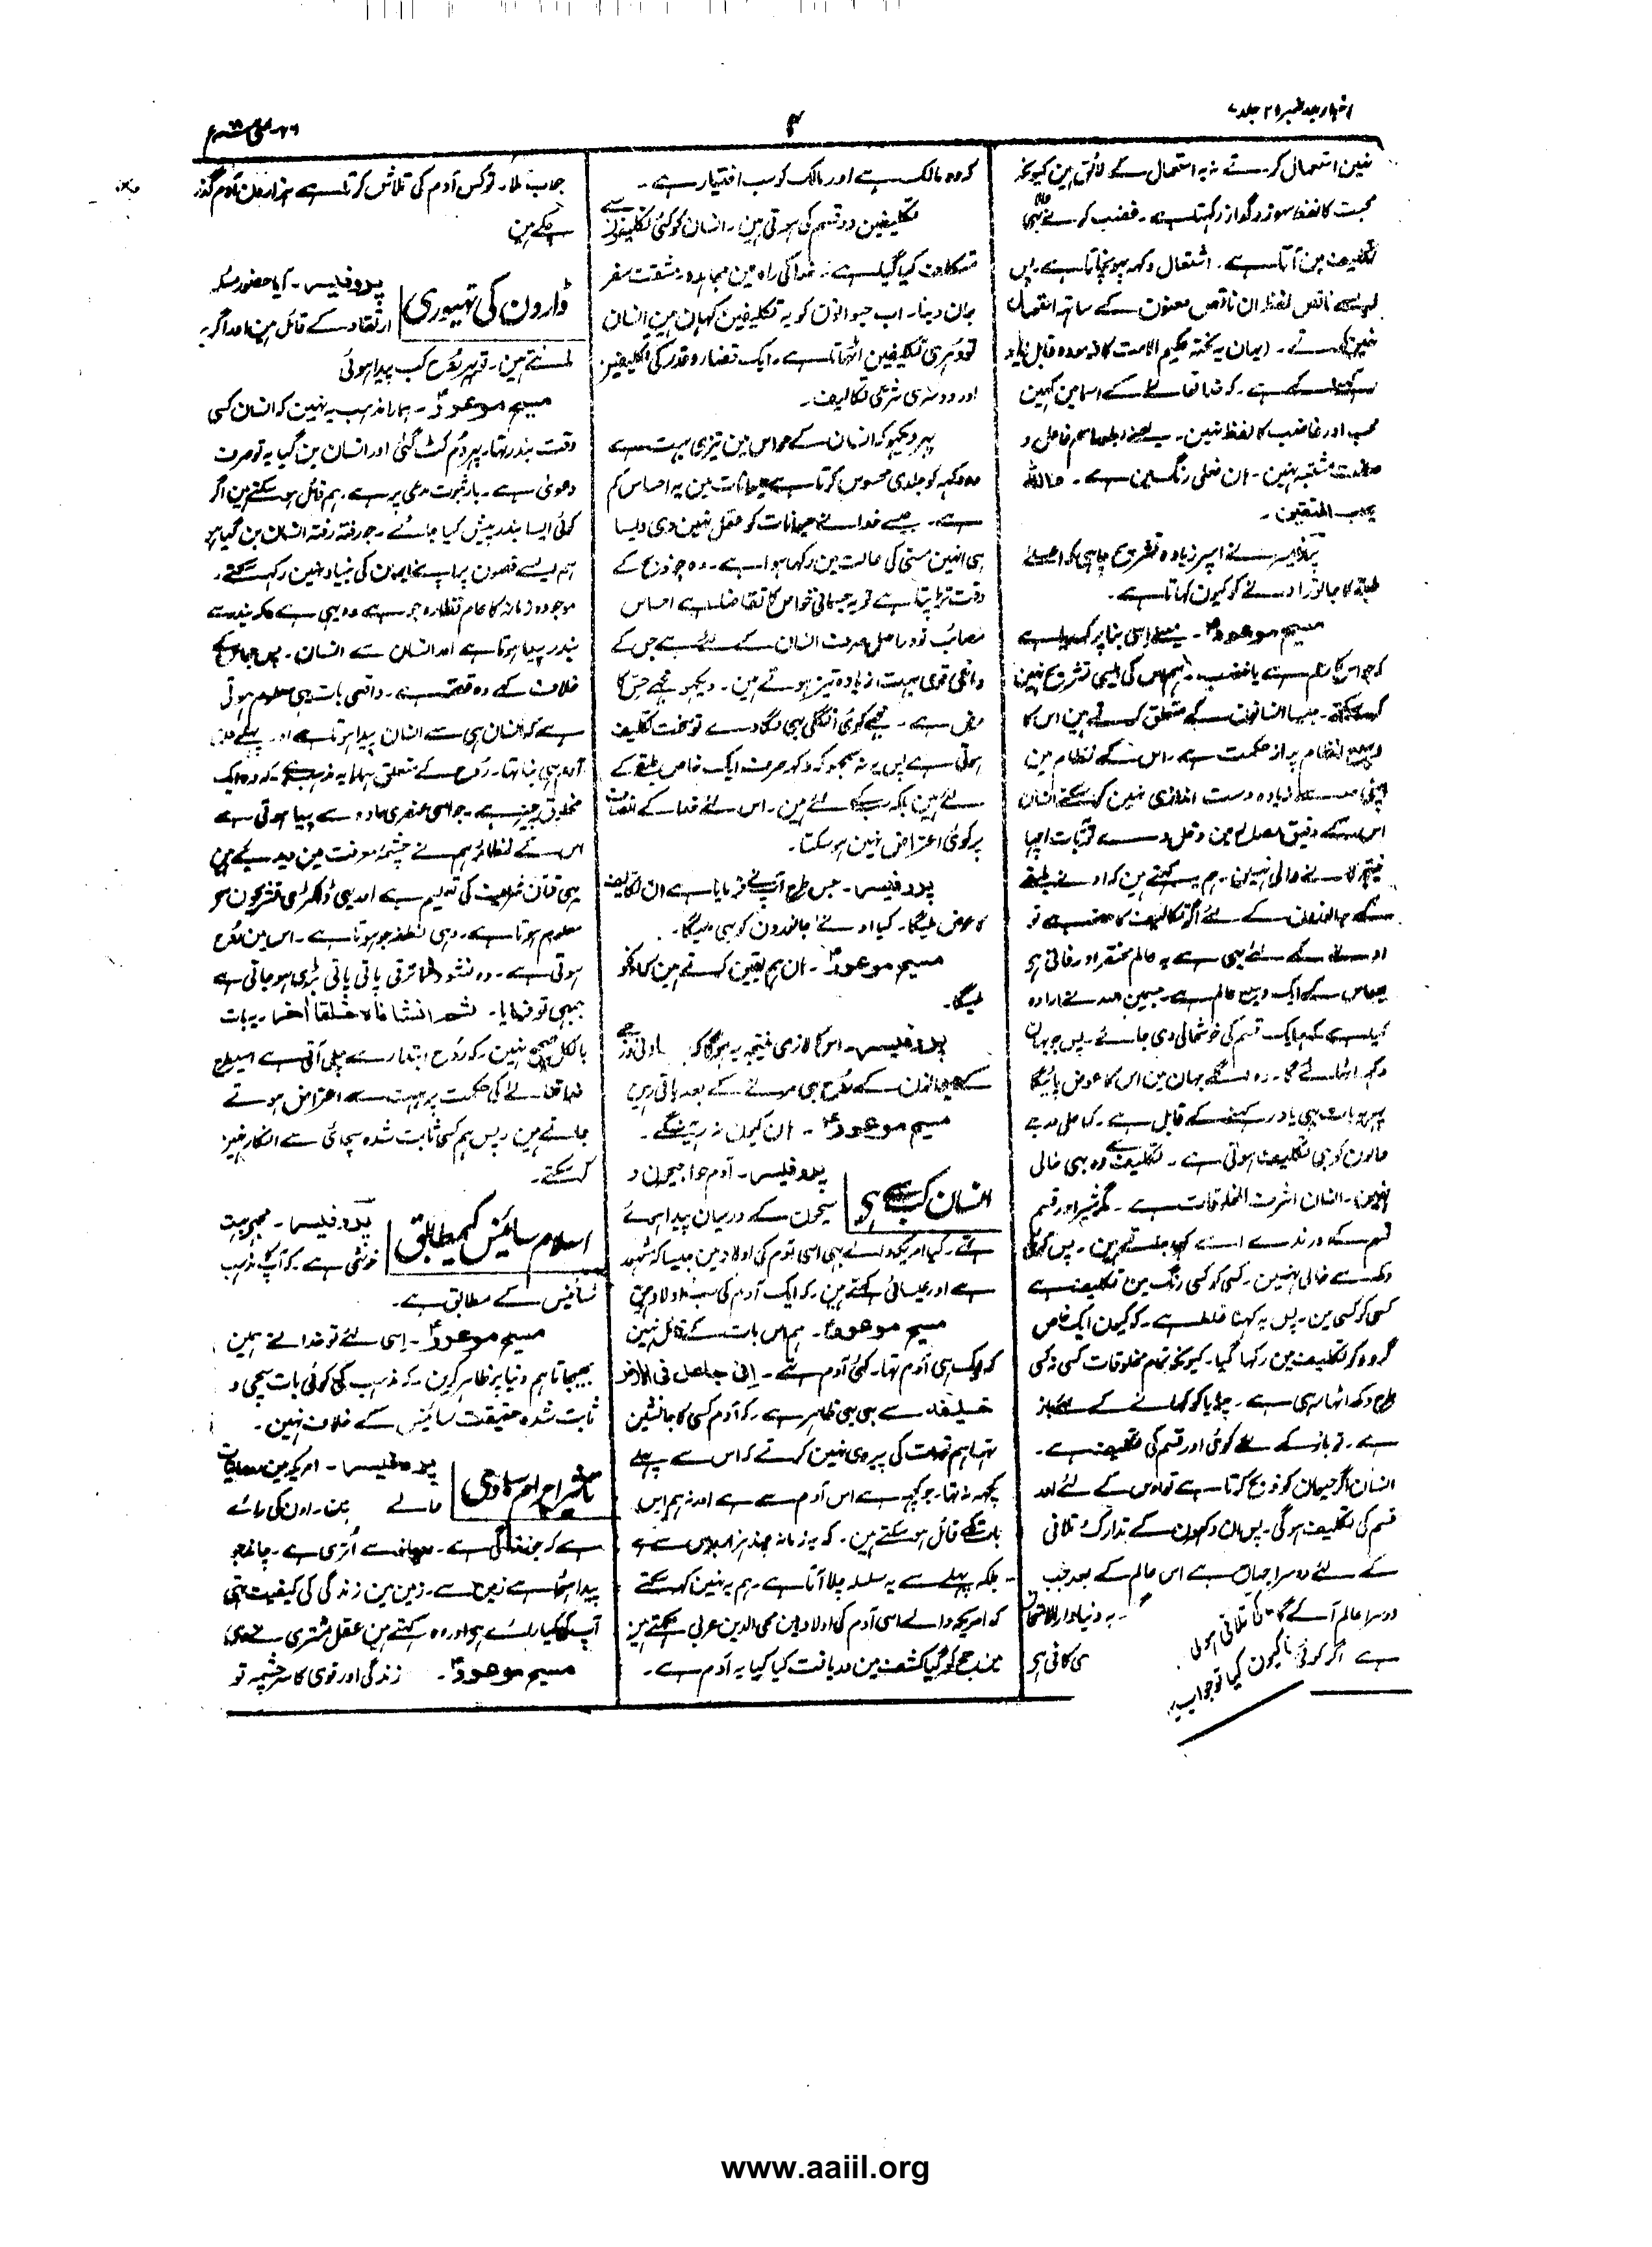 اخبار بدر نمبر ۲۱ جلد ۷
۴
نہین استعمال کرتے نہ یہ استعمال کے لائق ہین کیونکہ
محبت کا لفظ سوز و گداز رکھتا ہے۔ غضب کرنے والا بھی
تکلیف مین آتا ہے۔ اشتعال دکھ پہونچاتا ہے۔ پس
ایسے ناقص لفظ ان ناقص معنون کے ساتھ استعمال
نہین کرتے۔ (یہان یہ نکتہ حکیم الامت کا فرمودہ قابل یاد
رکھنے کے ہے۔ کہ خدا تعالے کے اسما مین کہین
محب اور غاضب کا لفظ نہین۔ یعنے بطور اسم فاعل و
صفت مشتبہ نہین۔ ان فعلی رنگ مین ہے۔ واللہ
یحب المتقین۔
پروفیسر نے اسپر زیادہ تشریح چاہی کہ اعلےٰ
طبقہ کا جانور ادنےٰ کو کیون کھاتا ہے۔
مسیح موعودؑ۔ مینے اسی بنا پر کہدیا ہے
کہ جو اس کا رحم ہے یا غضب۔ ہم اس کی ایسی تشریح نہین
کر سکتے۔ جیسا انسانون کے متعلق کرتے ہین اس کا
وسیع انتظام پر از حکمت ہے۔ اس کے نظام مین
اپنی حد سے زیادہ دست اندازی نہین کر سکتے انسان
اس کے دقیق مصالح مین دخل دے تو یہ بات اچھا
نتیجہ لانے والی نہین۔ ہم یہ کہتے ہین کہ ادنے طبقے
کے جانورون کے لئے اگر تکالیف کا حصہ ہے تو
اعلے کے لئے بھی ہے یہ عالم مختصر اور فانی ہے
بعد اس کے ایک وسیع عالم ہے۔ جسمین اللہ نے ارادہ
کیا ہے کہ ہر ایک قسم کی خوشحالی دی جائے۔ پس جو یہان
دکھ اٹھائے گا۔ وہ اگلے جہان مین اس کا عوض پائیگا
پھر یہ بات بھی یاد رکھنے کے قابل ہے۔ کہ اعلی درجے
والون کو بھی تکلیف ہوتی ہے۔ تکلیف سے وہ بھی خالی
نہین۔ انسان اشرف المخلوقات ہے۔ مگر شیر اور قسم
قسم کے درندے اسے کھا جاتے ہین۔ پس کوئی
دکھ سے خالی نہین۔ کسی کو کسی رنگ مین تکلیف ہے
کسی کو کسی مین۔ پس یہ کہنا غلط ہے۔ کہ کیون ایک خاص
گروہ کو تکلیف مین رکھا گیا۔ کیونکہ تمام مخلوقات کسی نہ کسی
طرح دکھ اٹھا رہی ہے۔ چڑیا کو کھانے کے لئے باز
ہے۔ تو باز کے لئے کوئی اور قسم کی تکلیف ہے۔
انسان اگر حیوان کو ذبح کرتا ہے تو اس کے لئے اور
قسم کی تکلیف ہوگی۔ پس ان دکھون کے تدارک و تلافی
کے لئے دوسرا جہان ہے اس عالم کے بعد جب
دوسرا عالم آئے گا تلافی ہوگی۔ یہ دنیا دارالامتحان
ہے اگر کوئی کیون کیا تو جواب یہی کافی ہے
کہ وہ مالک ہے اور مالک کو سب اختیار ہے۔
تکلیفین دو قسم کی ہوتی ہین۔ انسان کو کئی تکلیفون سے
مکلف کیا گیا ہے۔ خدا کی راہ مین مجاہدہ۔ مشقت سفر
جان دینا۔ اب حیوانون کو یہ تکلیفین کہان ہین انسان
تو دوہری تکلیفین اٹھاتا ہے۔ ایک قضا و قدر کی تکلیفین
اور دوسری شرعی تکالیف۔
پھر دیکھو کہ انسان کے حواس مین تیزی بہت ہے
وہ دکھ کو جلدی محسوس کرتا ہے حیوانات مین یہ احساس کم
ہے۔ جیسے خدا نے حیوانات کو عقل نہین دی ویسا
ہی انہین مستی کی حالت مین رکھا ہوا ہے۔ وہ جو ذبح کے
وقت تڑپتا ہے تو یہ جسمانی خواص کا تقاضا ہے احساس
مصائب تو دراصل صرف انسان کے لئے ہے جس کے
دماغی قوی بہت زیادہ تیز ہوتے ہین۔ دیکھو مجھے حس کا
مرض ہے۔ مجھے کوئی انگلی بھی لگا دے تو سخت تکلیف
ہوتی ہے پس یہ نہ سمجھو کہ دکھ صرف ایک خاص طبقے کے
لئے ہین بلکہ سب کے لئے ہین۔ اس لئے خدا کے انصاف
پر کوئی اعتراض نہین ہو سکتا۔
پروفیسر۔ جس طرح آپنے فرمایا ہے ان تکالیف
کا عوض ملیگا۔ کیا ادنےٰ جانورون کو بھی ملیگا۔
مسیح موعودؑ۔ ان ہم یقین کرتے ہین کہ انکو
ملیگا۔
پروفیسر۔ اس کا لازمی نتیجہ یہ ہوگا کہ ادنی درجے
کے حیوانون کے روح بھی مرنے کے بعد باقی رہین
مسیح موعودؑ۔ ان کیون نہ رہینگے۔
انسان کب سے ہے
پروفیسر۔ آدم حوا جیحون و
سیحون کے درمیان پیدا ہوئے
تھے۔ کیا امریکہ والے بھی اسی آدم کی اولاد ہین جیسا کہ مشہور
ہے اور عیسائی کہتے ہین۔ کہ ایک آدم کی سب اولاد ہین
مسیح موعودؑ۔ ہم اس بات کے قائل نہین
کہ ایک ہی آدم تھا۔ کئی آدم تھے۔ انی جاعل فی الارض
خلیفہ سے بھی یہی ظاہر ہے۔ کہ آدم کسی کا جانشین
تھا ہم تورات کی پیروی نہین کرتے کہ اس سے پہلے
کچھ نہ تھا۔ جو کچھ ہے اس آدم سے ہے اور نہ ہم اس
بات کے قائل ہو سکتے ہین۔ کہ یہ زمانہ چند ہزار برس سے ہے
بلکہ پہلے سے یہ سلسلہ چلا آتا ہے۔ ہم یہ نہین کہہ سکتے
کہ امریکہ والے اسی آدم کی اولاد ہین محی الدین عربی لکھتے ہین
مین حج کو گیا کشف مین دریافت کیا کیا یہ آدم ہے۔
۲۶۔ مئی ۱۹۰۸ء
جواب ملا۔ تو کس آدم کی تلاش کرتا ہے ہزارون آدم گذر
چکے ہین
ڈارون کی تھیوری
پروفیسر۔ آیا حضور مسئلہ
ارتقاء کے قائل ہین اور اگر یہ
مانتے ہین۔ تو پھر روح کب پیدا ہوئی
مسیح موعودؑ۔ ہمارا مذہب یہ نہین کہ انسان کسی
وقت بندر تھا۔ پھر دم کٹ گئی اور انسان بن گیا یہ تو صرف
دعوی ہے۔ بار ثبوت مدعی پر ہے۔ ہم قائل ہو سکتے ہین اگر
کوئی ایسا بندر پیش کیا جائے۔ جو رفتہ رفتہ انسان بن گیا ہو
ہم ایسے قصون پر اپنے ایمان کی بنیاد نہین رکھ سکتے۔
موجودہ زمانہ کا عام نظارہ جو ہے وہ یہی ہے کہ بندر سے
بندر پیدا ہوتا ہے اور انسان سے انسان۔ پس جو اس کے
خلاف ہے وہ قصہ ہے۔ واقعی بات یہی معلوم ہوتی
ہے کہ انسان ہی سے انسان پیدا ہوتا ہے اور پہلے دن
آدم ہی بنا تھا۔ روح کے متعلق ہمارا یہ مذہب ہے۔ کہ وہ ایک
مخلوق چیز ہے۔ جو اسی عنصری مادہ سے پیدا ہوتی ہے
اس کے نظائر ہم نے چشمہ معرفت مین دیدئے ہین
یہی قرآن شریف کی تعلیم ہے اور یہی ڈاکٹری تشریحون سے
معلوم ہوتا ہے۔ وہی نطفہ جو ہوتا ہے۔ اس مین روح
ہوتی ہے۔ وہ نشو و نما ترقی پاتی پاتی بڑی ہو جاتی ہے
جبھی تو فرمایا۔ ثم انشاناہ خلقا اخر۔ یہ بات
بالکل صحیح نہین۔ کہ روح ابتدا سے چلی آتی ہے اسیطرح
خدا تعالے کی حکمت پر بہت سے اعتراض ہوتے
جاتے ہین۔ پس ہم کسی ثابت شدہ سچائی سے انکار نہین
کر سکتے۔
اسلام سائنس کے مطابق
پروفیسر۔ مجھے بہت
خوشی ہے۔ کہ آپ کا مذہب
سائنس کے مطابق ہے۔
مسیح موعودؑ۔ اسی لئے تو خدا نے ہمین
بھیجا تا ہم دنیا پر ظاہر کرین۔ کہ مذہب کی کوئی بات سچی و
ثابت شدہ حقیقت سائنس کے خلاف نہین۔
تاثیر اجرام سماوی
پروفیسر۔ امریکہ مین
والے ہین۔ اون کی رائے
ہے کہ جو زندگی ہے۔ چاند سے اتری ہے۔ چاند جو
پیدا ہوا ہے زمین سے۔ زمین مین زندگی کی کیفیت تھی
آپ کی کیا رائے ہے اور وہ کہتے ہین عقل مشتری سے
مسیح موعودؑ۔ زندگی اور قوی کا سرچشمہ تو
www.aaiil.org